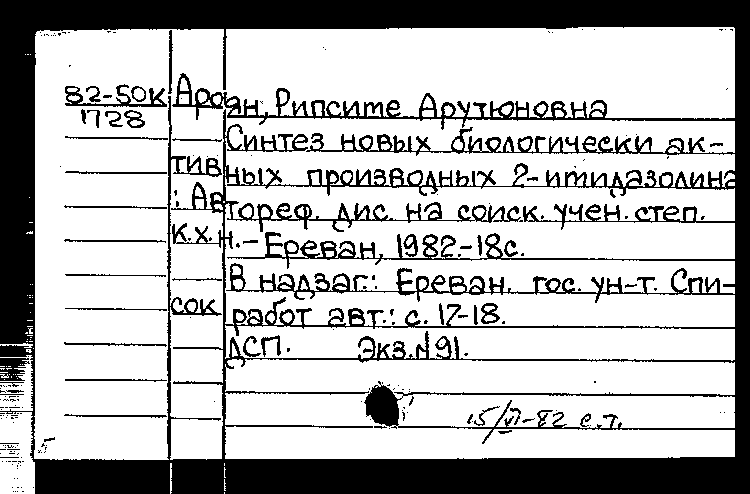 82-50К Ароян, Рипсите Арутюновна
1728
Синтез новых биологически ак-
тивных производных 2-имидазолина
: Автореф. дис. на соиск. учен. степ.
к.х.н.- Ереван, 1982.-18с.
В надзаг.: Ереван. гос. ун-т. Спи-
сок работ авт.: с. 17-18.
ДСП. Экз.№91.
15/VI-82 с.т.
5